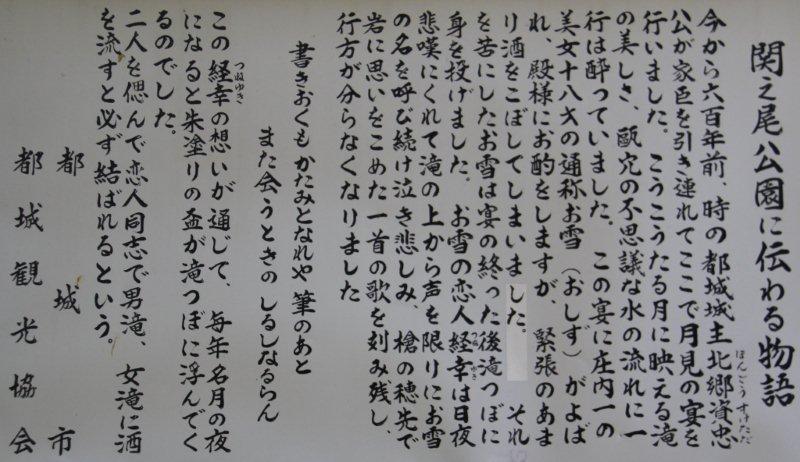 関之尾公園に伝わる物語
今から六百年前、時の都城城主北郷資忠
ほんごうすけただ
公が家臣を引き連れてここで月見の宴を
行いました。こうこうたる月に映える滝
の美しさ、甌穴の不思議な水の流れに一
行は酔っていました。この宴に庄内一の
美女十八才の通称お雪（おしず）がよば
れ、殿様にお酌をしますが、緊張のあま
り酒をこぼしてしまいました。それ
を苦にしたお雪は宴の終った後滝つぼに
身を投げました。お雪の恋人経幸は日夜
つねゆき
悲嘆にくれて滝の上から声を限りにお雪
の名を呼び続け泣き悲しみ、槍の穂先で
岩に思いをこめた一首の歌を刻み残し、
行方が分らなくなりました
書きおくも かたみとなれや 筆のあと
また会うときの しるしなるらん
この経幸の想いが通じて、毎年名月の夜
つねゆき
になると朱塗りの盃が滝つぼに浮んでく
るのでした。
二人を偲んで恋人同志で男滝、女滝に酒
を流すと必ず結ばれるという。
都城市
都城観光協会